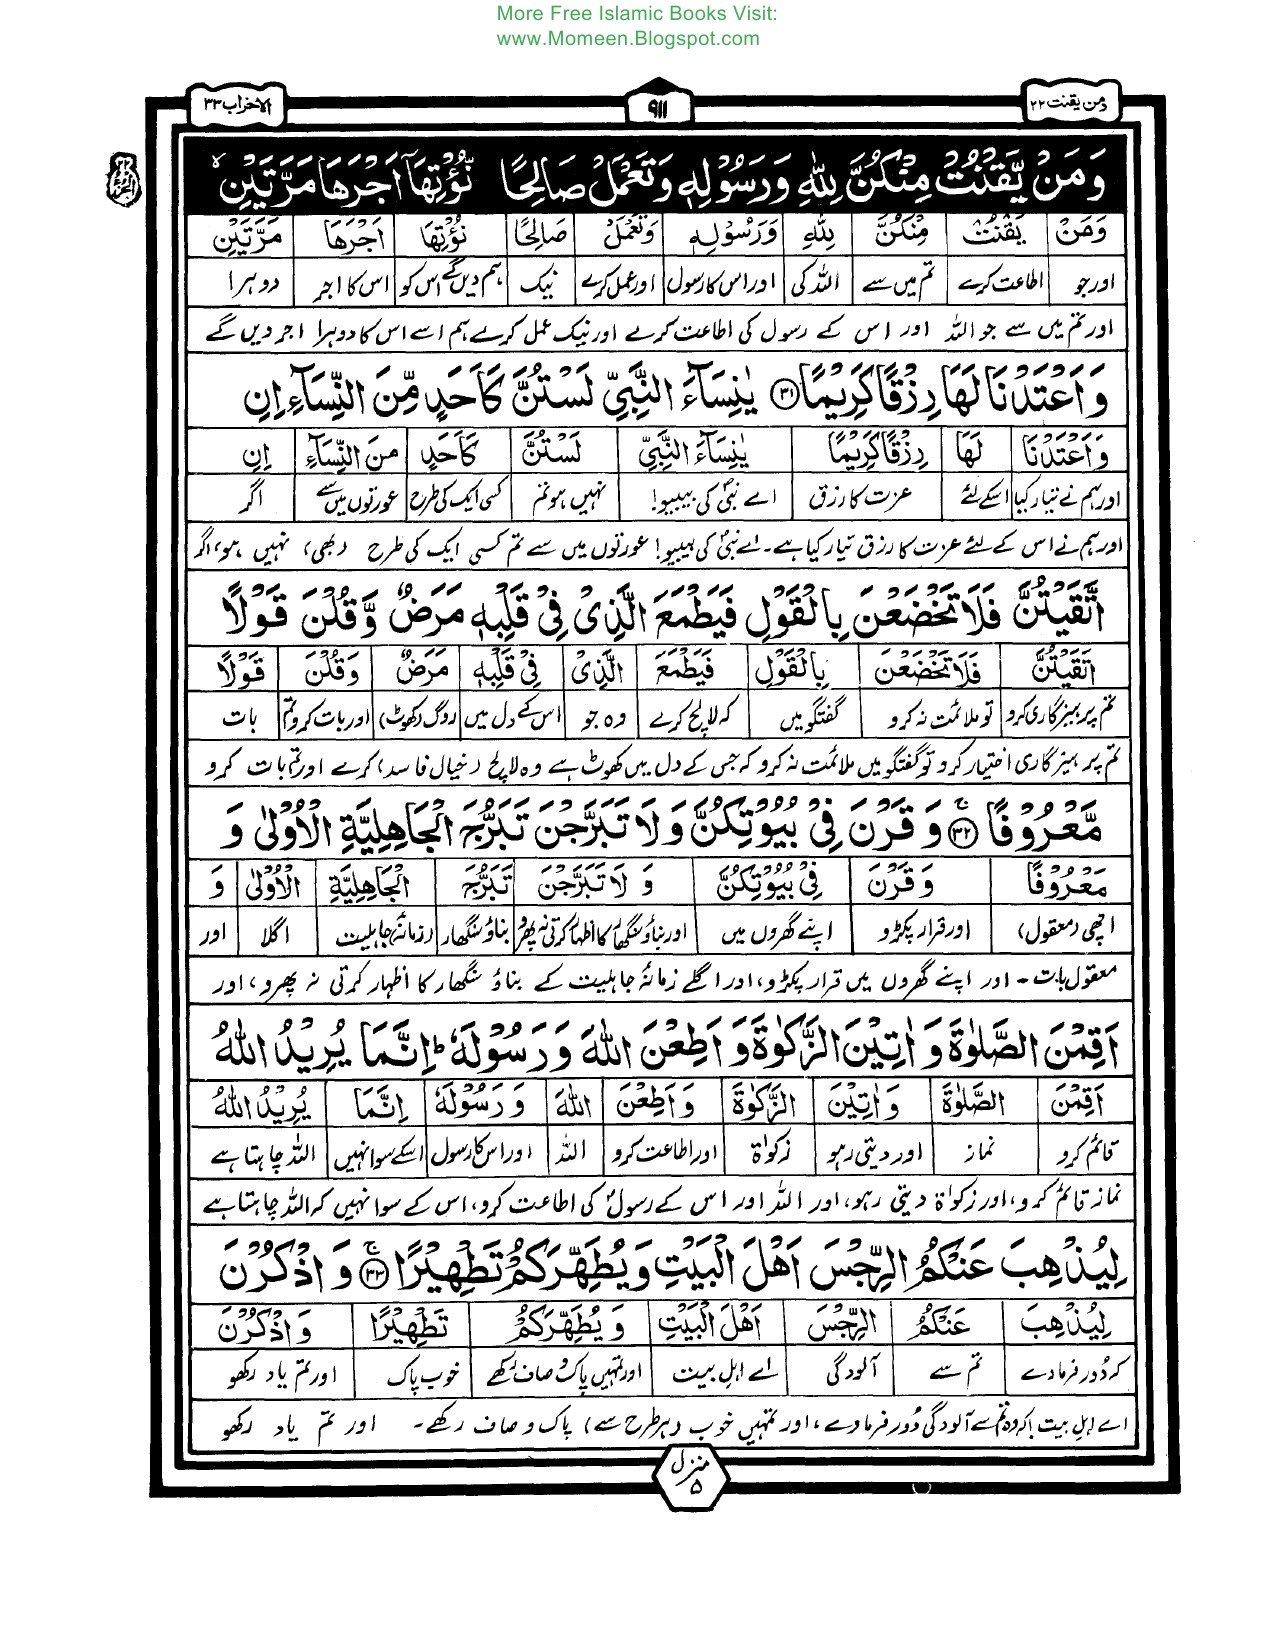 More Free Islamic Books Visit:
www.Momeen.Blogspot.com
ومن یقنت ۲۲
۹۱۱
الاحزاب ۳۳
وَمَنْ يَّقْنُتْ مِنْكُنَّ لِلّٰهِ وَرَسُوْلِهٖ وَتَعْمَلْ صَالِحًا نُّؤْتِهَاۤ اَجْرَهَا مَرَّتَيْنِ ۙ
وَمَنْ يَقْنُتْ مِنْكُنَّ لِلّٰهِ وَرَسُوْلِهٖ وَتَعْمَلْ صَالِحًا نُؤْتِهَا اَجْرَهَا مَرَّتَيْنِ
اور جو اطاعت کرے تم میں سے اللہ کی اور اس کا رسول اور عمل کرے نیک ہم دیں گے اس کو اس کا اجر دوہرا
اور تم میں سے جو اللہ اور اس کے رسول کی اطاعت کرے اور نیک عمل کرے ہم اسے اس کا دوہرا اجر دیں گے
وَاَعْتَدْنَا لَهَا رِزْقًا كَرِيْمًا ۳۱ يٰنِسَآءَ النَّبِيِّ لَسْتُنَّ كَاَحَدٍ مِّنَ النِّسَآءِ اِنِ
وَاَعْتَدْنَا لَهَا رِزْقًا كَرِيْمًا يٰنِسَآءَ النَّبِيِّ لَسْتُنَّ كَاَحَدٍ مِنَ النِّسَآءِ اِنِ
اور ہم نے تیار کیا اسکے لئے عزت کا رزق اے نبیؐ کی بیبیو! نہیں ہو تم کسی ایک کی طرح عورتوں میں سے اگر
اور ہم نے اس کے لئے عزت کا رزق تیار کیا ہے۔ اے نبیؐ کی بیبیو! عورتوں میں سے تم کسی ایک کی طرح (بھی) نہیں ہو، اگر
اتَّقَيْتُنَّ فَلَا تَخْضَعْنَ بِالْقَوْلِ فَيَطْمَعَ الَّذِيْ فِيْ قَلْبِهٖ مَرَضٌ وَّقُلْنَ قَوْلًا
اتَّقَيْتُنَّ فَلَا تَخْضَعْنَ بِالْقَوْلِ فَيَطْمَعَ الَّذِيْ فِيْ قَلْبِهٖ مَرَضٌ وَقُلْنَ قَوْلًا
تم پرہیزگاری کرو تو ملائمت نہ کرو گفتگو میں کہ لالچ کرے وہ جو اس کے دل میں روگ (کھوٹ) اور بات کرو تم بات
تم پرہیزگاری اختیار کرو تو گفتگو میں ملائمت نہ کرو کہ جس کے دل میں کھوٹ ہے وہ لالچ (خیال فاسد) کرے اور تم بات کرو
مَّعْرُوْفًا ۚ ۳۲ وَقَرْنَ فِيْ بُيُوْتِكُنَّ وَلَا تَبَرَّجْنَ تَبَرُّجَ الْجَاهِلِيَّةِ الْاُوْلٰى وَ
مَعْرُوْفًا وَقَرْنَ فِيْ بُيُوْتِكُنَّ وَلَا تَبَرَّجْنَ تَبَرُّجَ الْجَاهِلِيَّةِ الْاُوْلٰى وَ
اچھی (معقول) اور قرار پکڑو اپنے گھروں میں اور بناؤ سنگھار کا اظہار کرتی نہ پھرو بناؤ سنگھار (زمانۂ) جاہلیت اگلا اور
معقول بات۔ اور اپنے گھروں میں قرار پکڑو، اور اگلے زمانۂ جاہلیت کے بناؤ سنگھار کا اظہار کرتی نہ پھرو، اور
اَقِمْنَ الصَّلٰوةَ وَاٰتِيْنَ الزَّكٰوةَ وَاَطِعْنَ اللّٰهَ وَرَسُوْلَهٗ ؕ اِنَّمَا يُرِيْدُ اللّٰهُ
اَقِمْنَ الصَّلٰوةَ وَاٰتِيْنَ الزَّكٰوةَ وَاَطِعْنَ اللّٰهَ وَرَسُوْلَهٗ اِنَّمَا يُرِيْدُ اللّٰهُ
قائم کرو نماز اور دیتی رہو زکوٰۃ اور اطاعت کرو اللہ اور اس کا رسول اسکے سوا نہیں اللہ چاہتا ہے
نماز قائم کرو، اور زکوٰۃ دیتی رہو، اور اللہ اور اس کے رسولؐ کی اطاعت کرو، اس کے سوا نہیں کہ اللہ چاہتا ہے
لِيُذْهِبَ عَنْكُمُ الرِّجْسَ اَهْلَ الْبَيْتِ وَيُطَهِّرَكُمْ تَطْهِيْرًا ۚ ۳۳ وَاذْكُرْنَ
لِيُذْهِبَ عَنْكُمُ الرِّجْسَ اَهْلَ الْبَيْتِ وَيُطَهِّرَكُمْ تَطْهِيْرًا وَاذْكُرْنَ
کہ دُور فرما دے تم سے آلودگی اے اہلِ بیت اور تمہیں پاک و صاف رکھے خوب پاک اور تم یاد رکھو
اے اہلِ بیت! کہ وہ تم سے آلودگی دُور فرما دے، اور تمہیں خوب (ہر طرح سے) پاک و صاف رکھے۔ اور تم یاد رکھو
منزل ۵